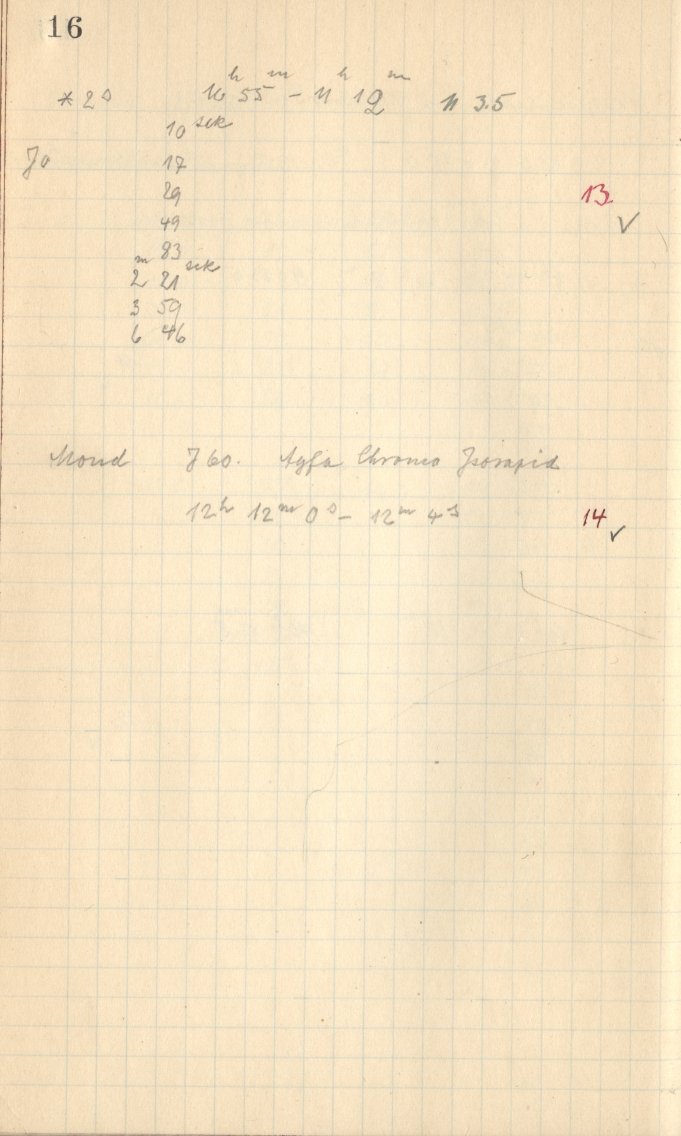 16
* 2ˢ 10ʰ 55ᵐ – 11ʰ 12ᵐ 3.5
10 sek
Jo 17
29 13
49 ✓
83
2ᵐ 21 sek
3 59
6 46
Mond J 60. Agfa Chromo Isorapid
12ʰ 12ᵐ 0ˢ – 12ᵐ 4ˢ 14 ✓